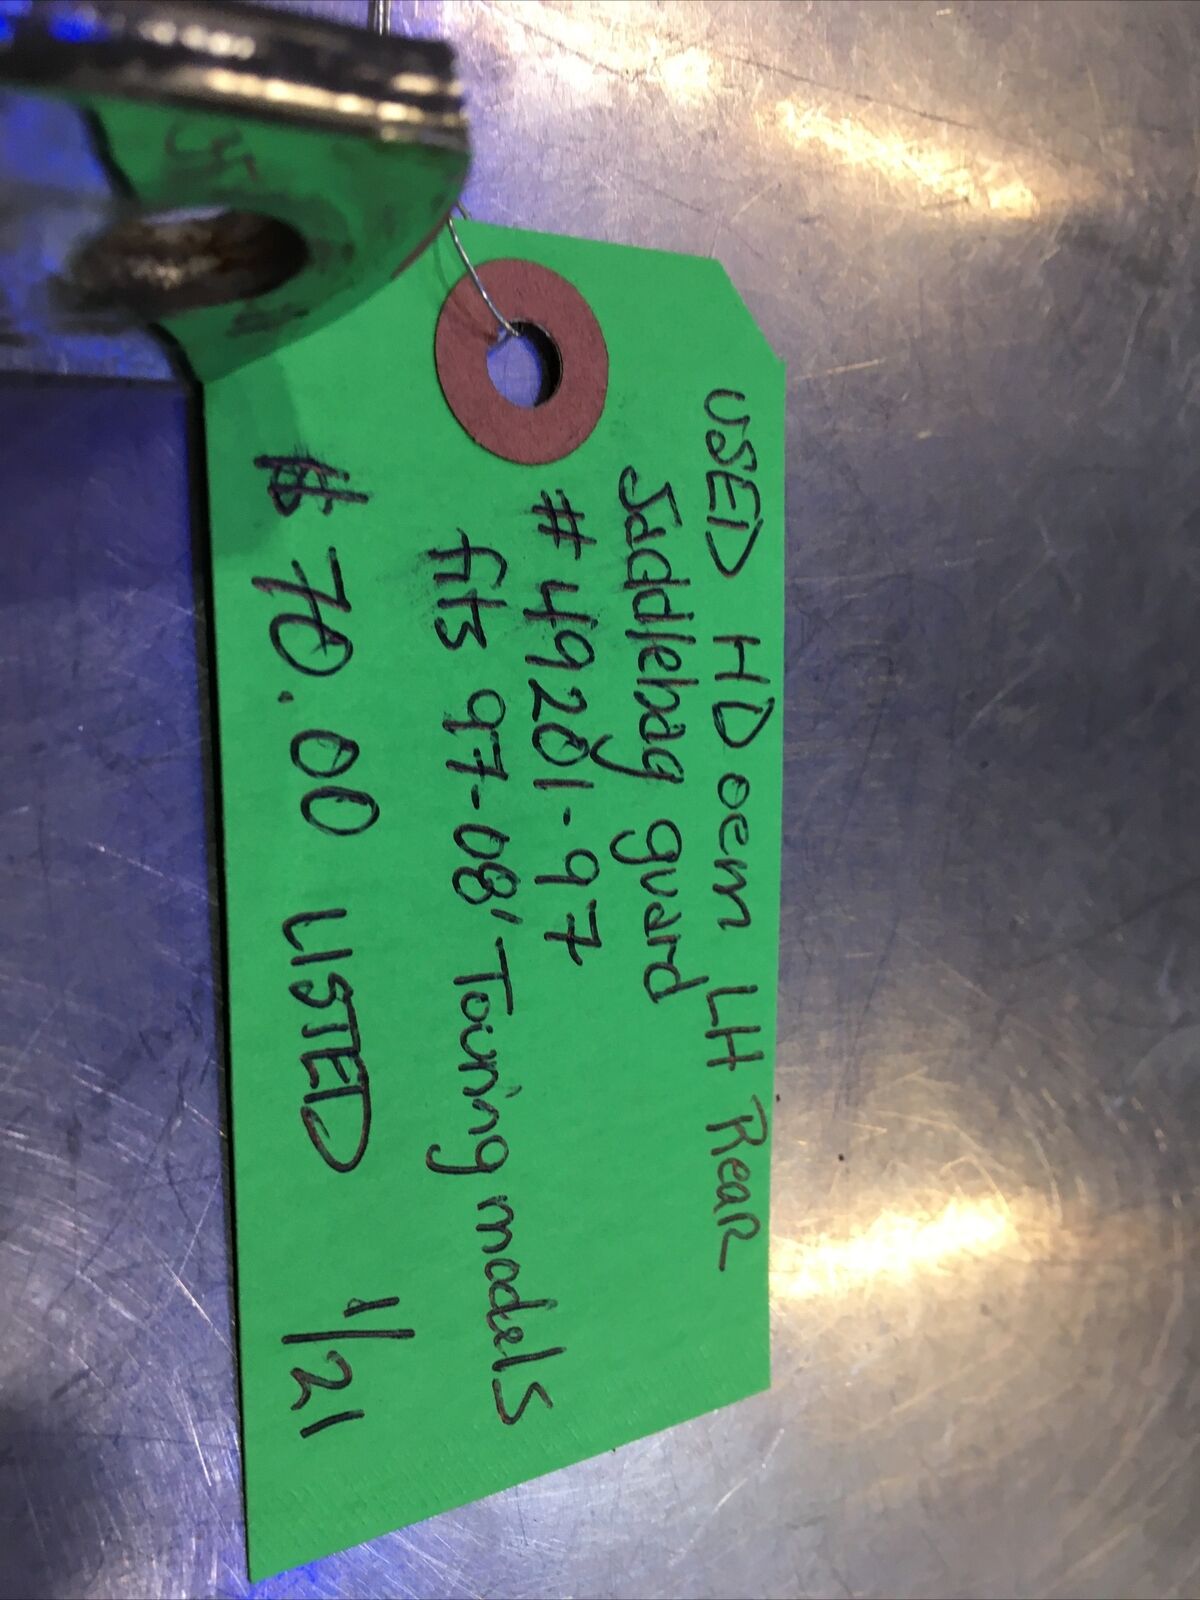 USED HD oem LH Rear
Saddlebag guard
# 49201-97
fits 97-08' Touring models
$70.00 LISTED 1/21